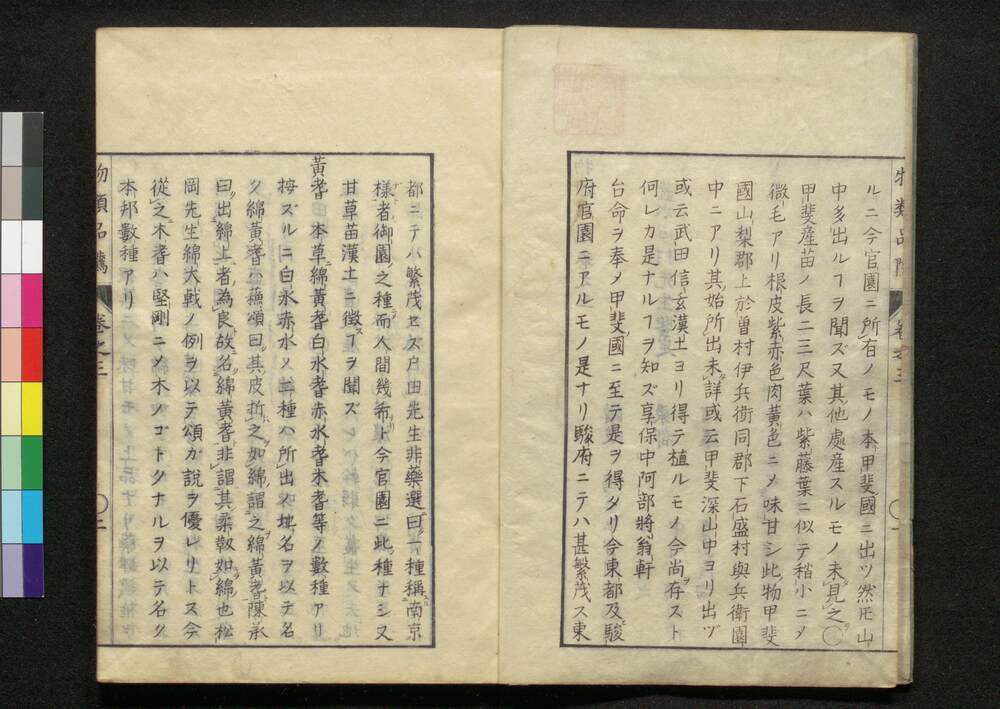 ルニ今官園ニ所有ノモノ本甲斐國ニ出ツ然𪜈山
中多出ルヿヲ聞ズ又其他處産スルモノ未見之○
甲斐産苗ノ長二三尺葉ハ紫藤葉ニ似テ稍小ニメ
微毛アリ根皮紫赤色肉黄色ニメ味甘シ此物甲斐
國山梨郡上於曽村伊兵衛同郡下石盛村與兵衛園
中ニアリ其始所出未詳或云甲斐深山中ヨリ出ヅ
或云武田信玄漢土ヨリ得テ植ルモノ今尚存スト
何レカ是ナルヿヲ知ズ享保中阿部將翁軒
台命ヲ奉メ甲斐國ニ至テ是ヲ得タリ今東都及駿
府官園ニアルモノ是ナリ駿府ニテハ甚繁茂ス東
都ニテハ繁茂セズ戸田先生非藥選曰一種稱南京
樣者御園之種而人間幾希ト今官園ニ此種ナシ又
甘草苗漢土ニ徴スヿヲ聞ズ
黄耆 本草綿黄耆白水耆赤水耆木耆等ノ數種アリ
按ズルニ白水赤水ノ二種ハ所出ノ地名ヲ以テ名
ク綿黄耆ハ蘓頌曰其皮折之如綿謂之綿黄耆陳承
曰出綿上者為良故名綿黄耆非謂其柔靱如綿也松
岡先生綿大戟ノ例ヲ以テ頌カ説ヲ優レリトス今
從之木耆ハ堅剛ニメ木ノゴトクナルヲ以テ名ク
本邦數種アリ
物類品隲 卷之三 ○二